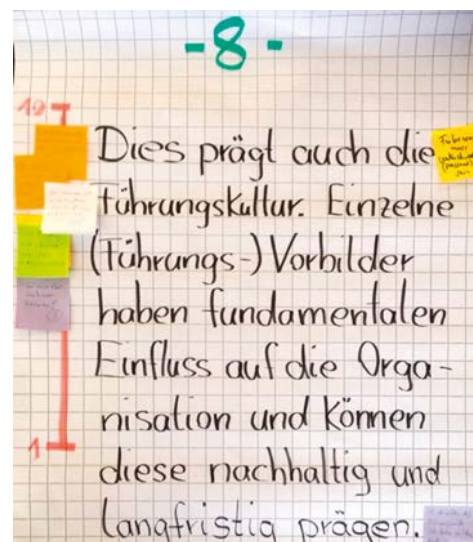 -8-
10
Dies prägt auch die
Führungskultur. Einzelne
(Führungs-) Vorbilder
haben fundamentalen
Einfluss auf die Orga-
nisation und können
1
diese nachhaltig und
langfristig prägen.